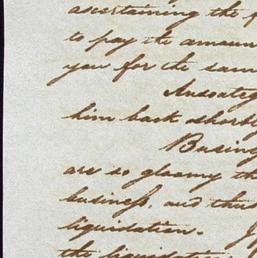 ascertaining the
to pay the amoun
you for the sam
him back shortly
Busin
are so gloomy th
business, and thus
liquidation.
the liquidation